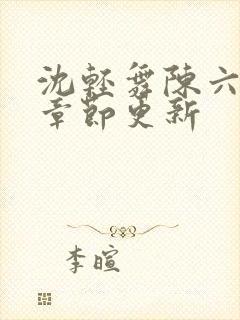 沈轻舞陈六
章节更新
李暄